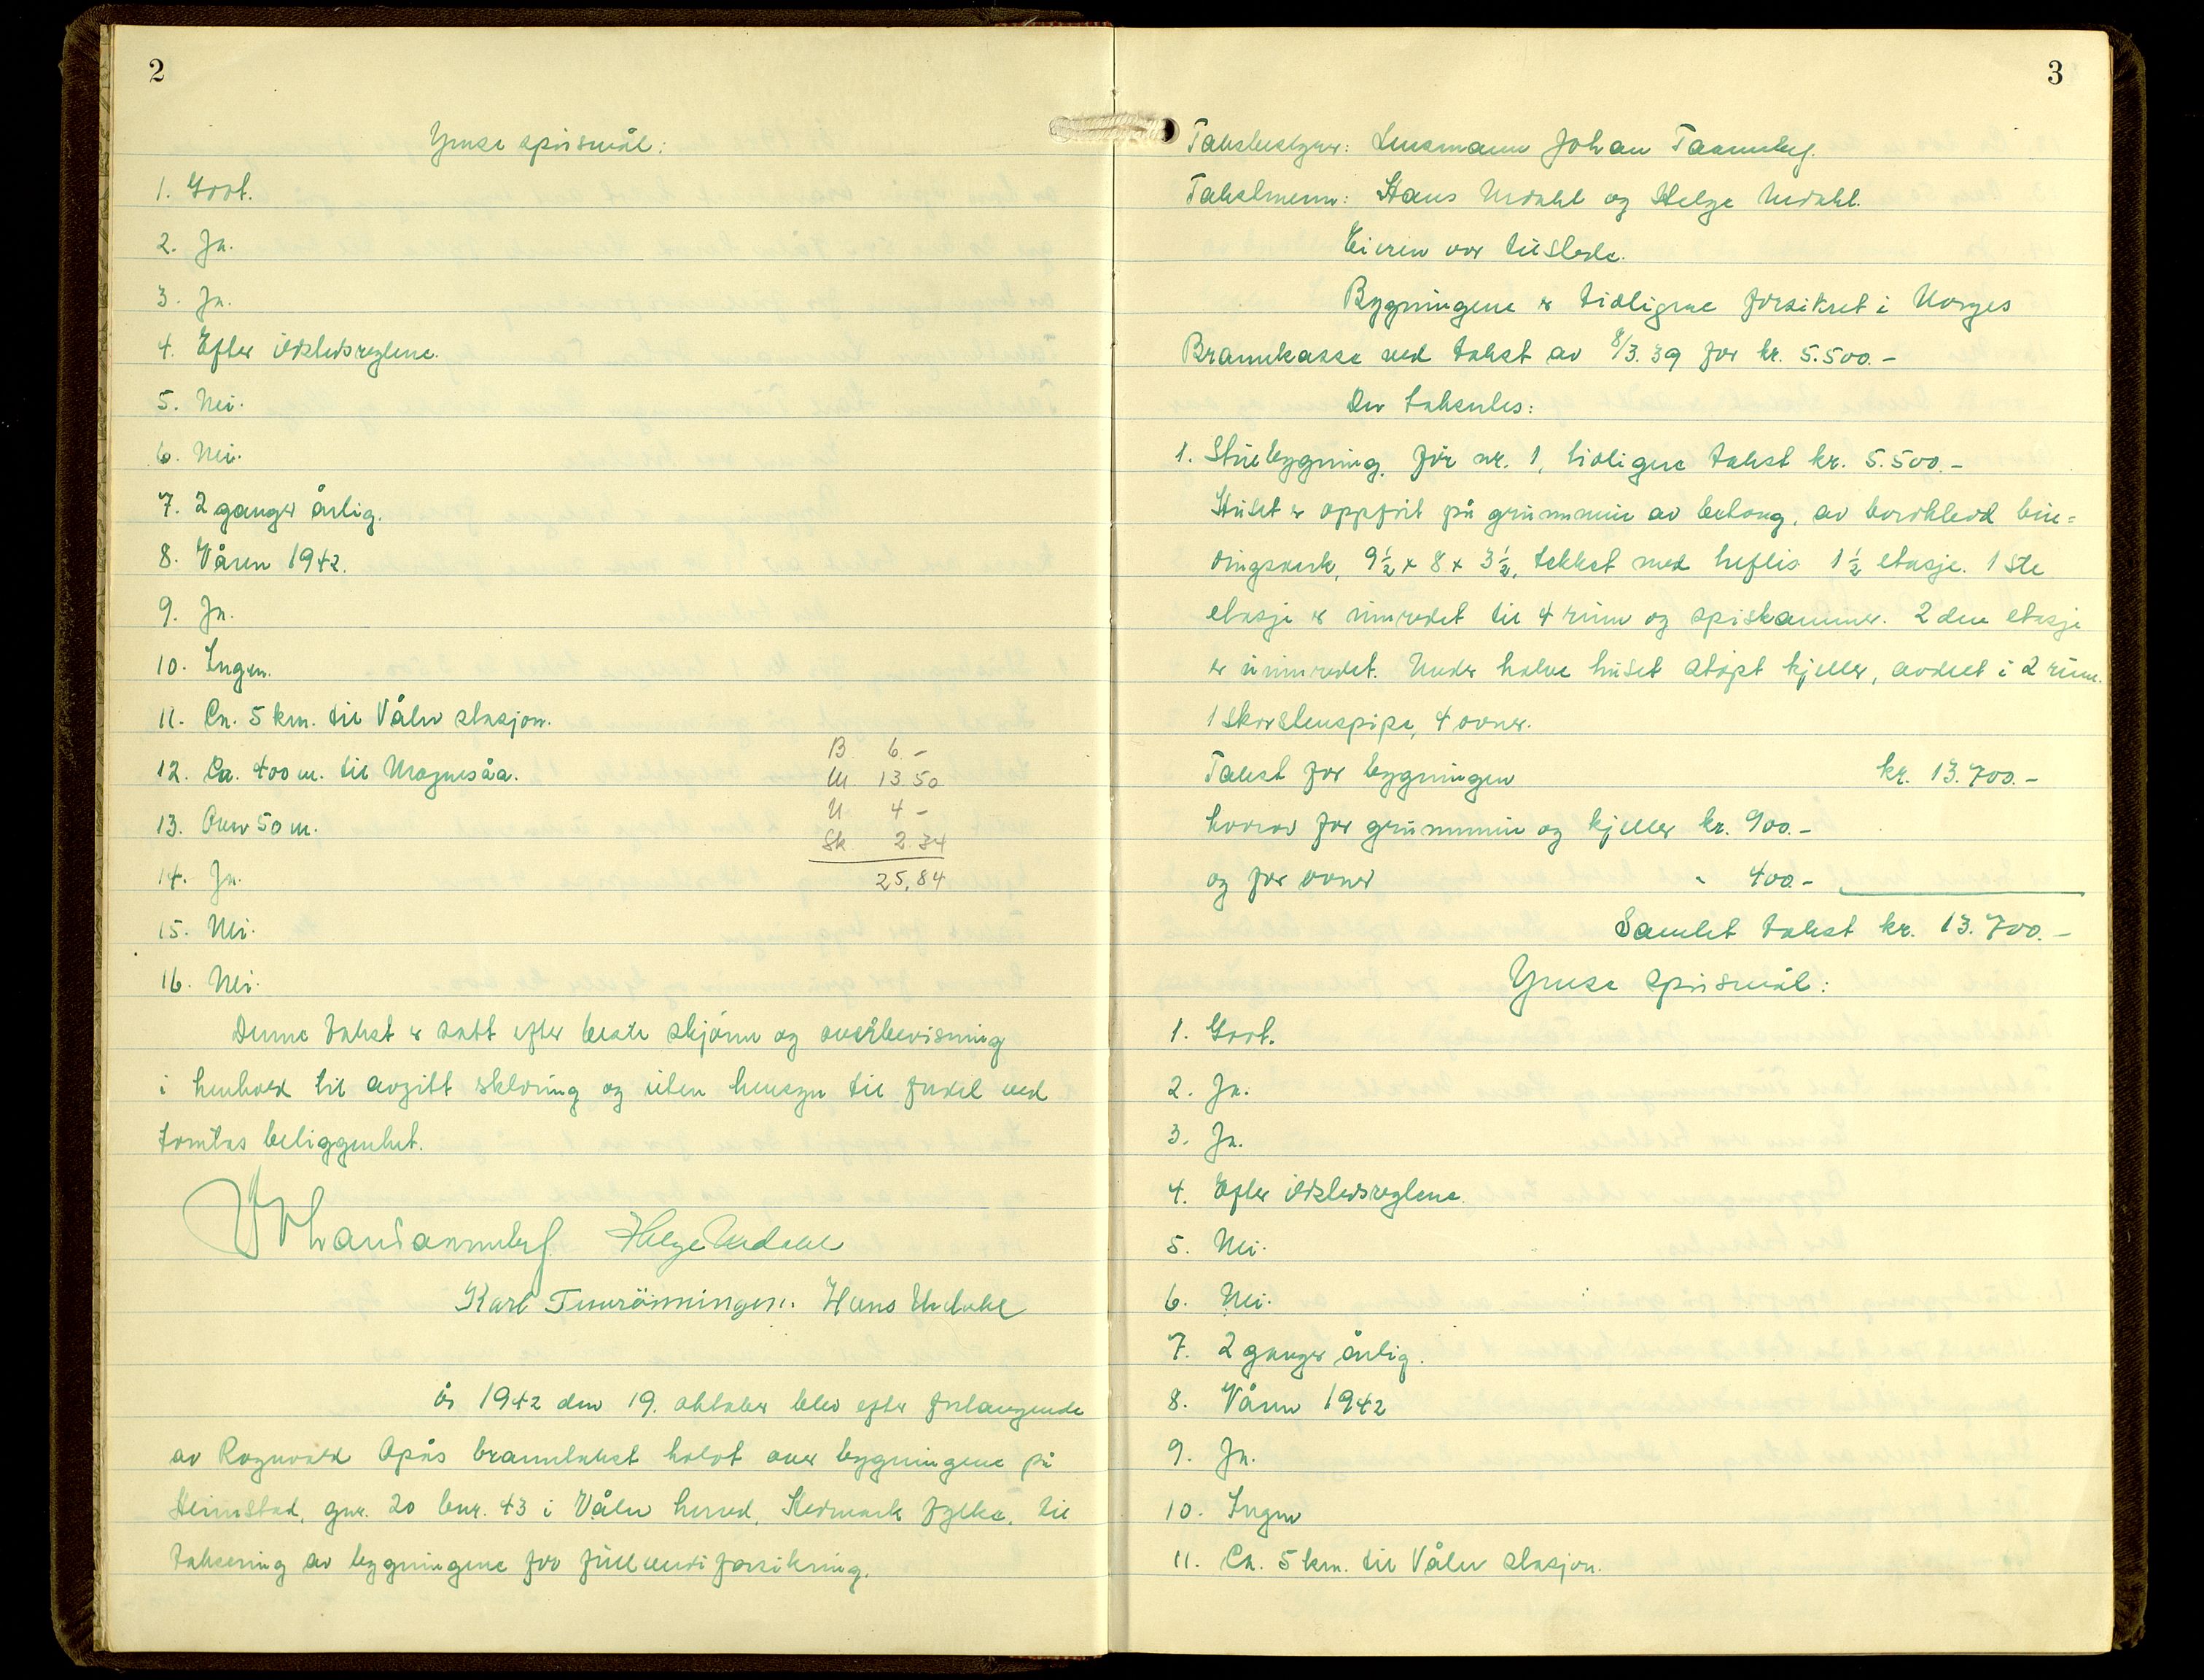 2
Ymse spørsmål:
1. Godt.
2. Ja.
3. Ja.
4. Efter ildstedsreglene.
5. Nei.
6. Nei.
7. 2 ganger årlig.
8. Våren 1942.
9. Ja.
10. Ingen.
11. Ca. 5 km. til Våler stasjon.
12. Ca. 400 m. til Mognesåa.
13. Over 50 m.
14. Ja.
15. Nei.
16. Nei.
B 6.-
M. 13.50
U 4 -
Sk 2.34
25,84
Denne takst er satt efter beste skjønn og overbevisning
i henhold til avgitt erklæring og uten hensyn til fordel ved
tomtas beliggenhet.
Johan Tannneberg Helge Urdahl
Karl Hans Urdahl
År 1942 den 19. oktober blev efter forlangende
av Ragnvald Opås branntakst holdt over bygningene på
Heimstad, gnr. 20 bnr. 43 i Våler herred, Hedmark fylke, til
taksering av bygningene for fullverdiforsikring.
3
Takstbestyrer: Lensmann Johan
Takstmenn: Hans Urdahl og Helge Urdahl.
Eieren var tilstede.
Bygningene er tidligere forsikret i Norges
Brannkasse ved takst av 8/3.39 for kr. 5.500.-
Der takseres:
1. Stuebygning, før nr. 1, tidligere takst kr. 5.500.-
Huset er oppført på grunnmur av betong, av bordkledd bin=
dingsverk, 9½ x 8 x 3½, tekket med høflis 1½ etasje. 1ste
etasje er innredet til 4 rum og spiskammer. 2den etasje
er uinnredet. Under halve huset støpt kjeller, avdelt i 2 rum.
1 skorstenspipe, 4 ovner.
Takst for bygningen kr. 13.700.-
hvorav for grunnmur og kjeller kr. 900.-
og for ovner " 400.-
Samlet takst kr. 13.700.-
Ymse spørsmål:
1. Godt.
2. Ja.
3. Ja.
4. Efter ildstedsreglene.
5. Nei.
6. Nei.
7. 2 ganger årlig.
8. Våren 1942
9. Ja.
10. Ingen
11. Ca. 5 km. til Våler stasjon.